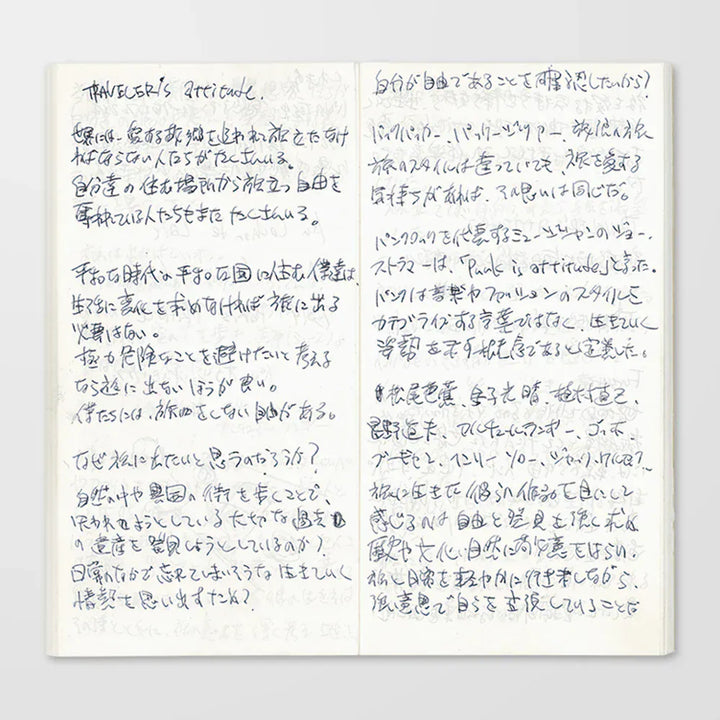 TRAVELER's attitude.
世界には、愛する故郷を追われて旅立たなけ
ればならない人たちがたくさんいる。
自分達の住む場所から旅立つ自由を
奪われている人たちもまたたくさんいる。
平和な時代の平和な国に住む僕達は、
生活に変化を求めなければ旅に出る
必要はない。
極力危険なことを避けたいと考える
なら旅に出ないほうが良い。
僕たちには、旅をしない自由がある。
なぜ旅に出たいと思うのだろうか?
自然の中や異国の街を歩くことで、
失われようとしている大切な過去
の遺産を発見しようとしているのか?
日常のなかで忘れてしまいそうな生きていく
情熱を思い出すため?
自分が自由であることを確認したいから?
バックパッカー、バッグ一つ、旅
旅のスタイルは違っていても、旅を愛する
気持ちがあれば、その思いは同じだ。
パンクロックを代表するミュージシャンのジョー・
ストラマーは、「Punk is attitude」と言った。
パンクは音楽やファッションのスタイルを
カテゴライズする言葉ではなく、生きていく
姿勢を示す概念であると定義した。
松尾芭蕉、金子光晴、植村直己、
星野道夫、アルチュールランボー、ゴッホ、
ゴーギャン、ヘンリーソロー、ジャック
旅に生きた彼らの作品を目にして
感じるのは自由と発見を強く求め
歴史や文化、自然に敬意をはらい、
旅と日常を軽やかに行き来しながら、
強い意思で自らを立脚していることだ